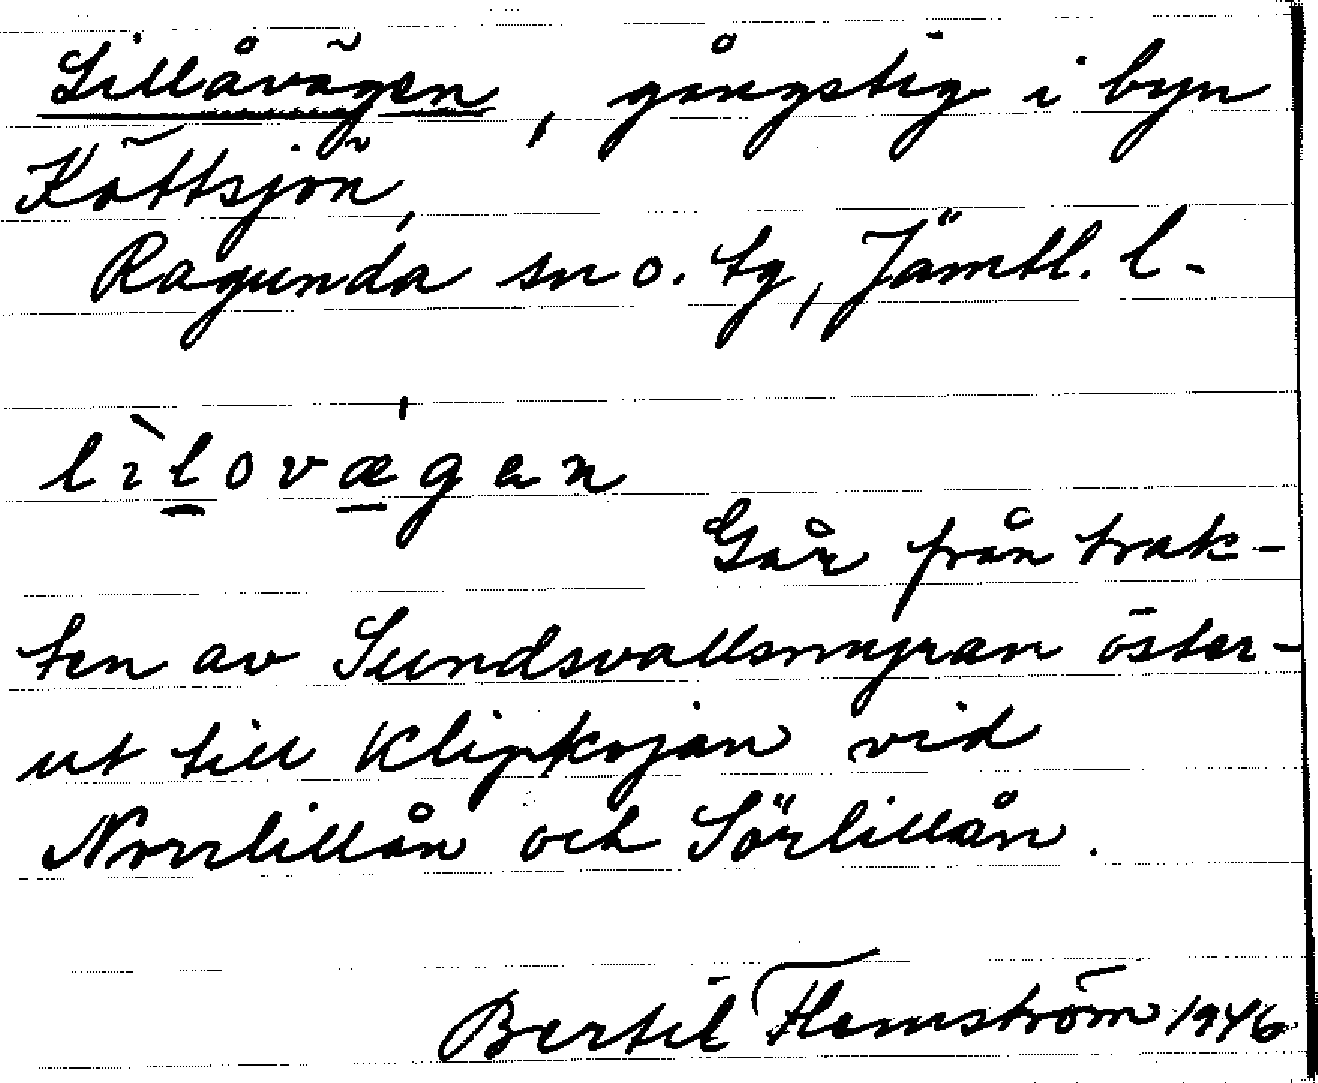 Lillåvägen, gångstig i byn
Köttsjön,
Ragunda sn o. tg, Jämtl. l.
lìlovægen
Går från trak-
ten av Sundsvallsmyran öster-
ut till Klipkojan vid
Norrlillån och Sörlillån.
Bertil Flemström 1946